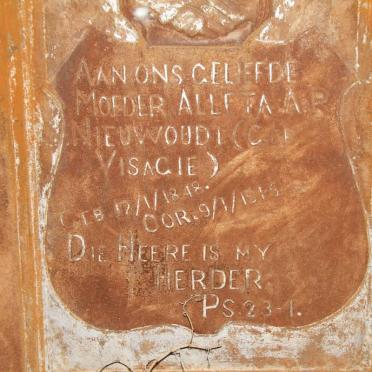 AAN ONS GELIEFDE
MOEDER ALLETA A.P.
NIEUWOUDT (GEB
VISAGIE)
GEB. 12/1/1848.
OOR. 9/1/
DIE HEERE IS MY
HERDER.
PS. 23-1.